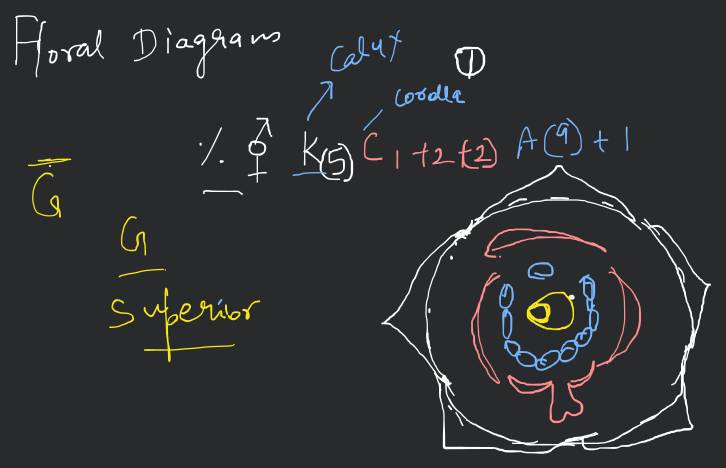 Floral Diagrams
Calyx
①
Corolla
%. ⚥ K(5) C1+2+(2) A(9)+1
G
G
Superior